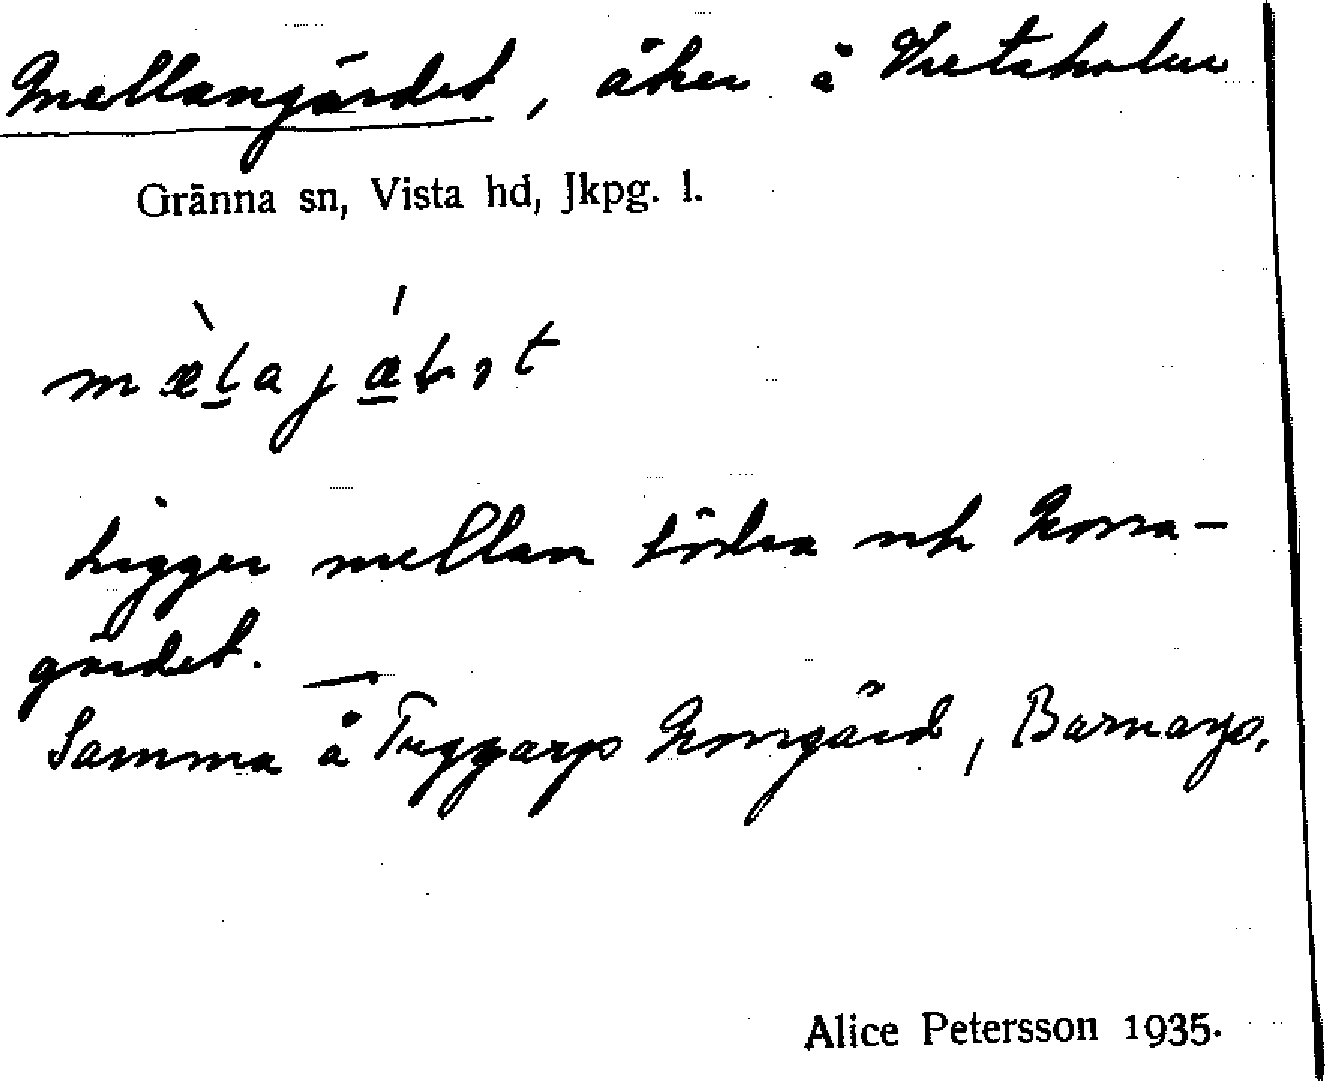 Mellangärdet, åker å Vretaholm
Gränna sn, Vista hd, Jkpg. l.
mælajæʀət
Ligger mellan södra och Norra-
gärdet. —
Samma å Tuggarp Norrgård, Barnarp,
Alice Petersson 1935.